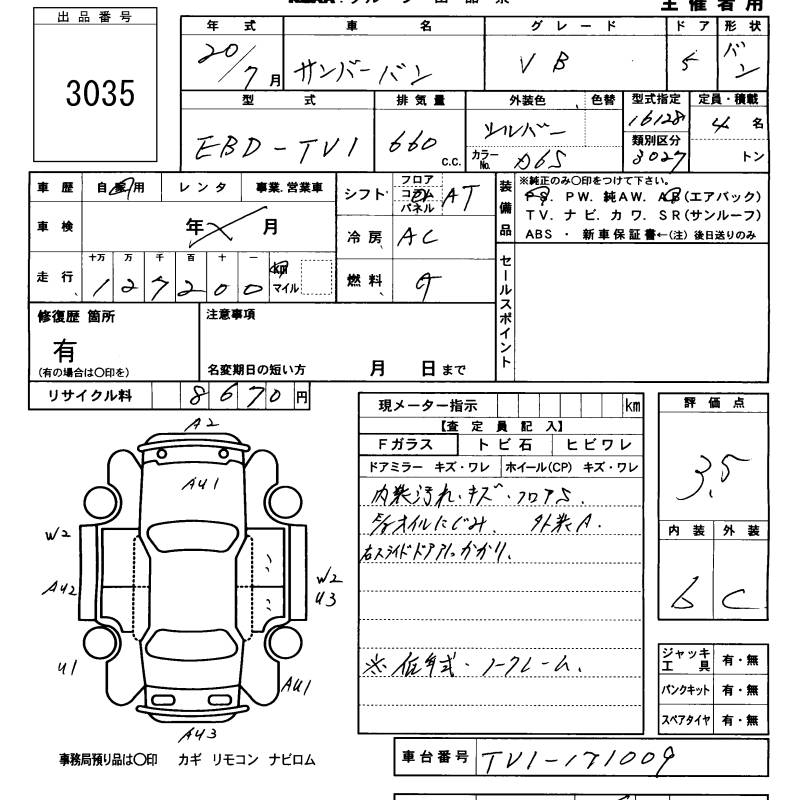 主催者用
出品番号
3035
年式 車名 グレード ドア 形状
20/7月 サンバーバン VB 5 バン
型式 排気量 外装色 色替 型式指定 定員・積載
EBD-TV1 660 c.c. シルバー 16128 4名
カラーNo. D6S 類別区分 3027 トン
車歴 自家用 レンタ 事業.営業車
シフト フロア コラム パネル AT
装備品
※純正のみ〇印をつけて下さい。
PS. PW. 純AW. AB(エアバック)
TV. ナビ. カワ. SR(サンルーフ)
ABS ・ 新車保証書←(注) 後日送りのみ
車検 年 月
冷房 AC
走行 十万 万 千 百 十 一
127200 km マイル
燃料 G
セールスポイント
修復歴 箇所
有
(有の場合は〇印を)
注意事項
名変期日の短い方 月 日まで
リサイクル料 8670円
現メーター指示 km
【査定員記入】
Fガラス トビ石 ヒビワレ
ドアミラー キズ・ワレ ホイール(CP) キズ・ワレ
内装汚れ・キズ・フロアS.
オイルにじみ. 外装A.
右スライドドア引っかかり.
※低年式・ノークレーム.
評価点
3.5
内装 外装
b C
A2
AU1
W2
AU2
W2
U3
U1
AU1
AU3
ジャッキ工具 有・無
パンクキット 有・無
スペアタイヤ 有・無
事務局預り品は〇印 カギ リモコン ナビロム
車台番号 TV1-171009